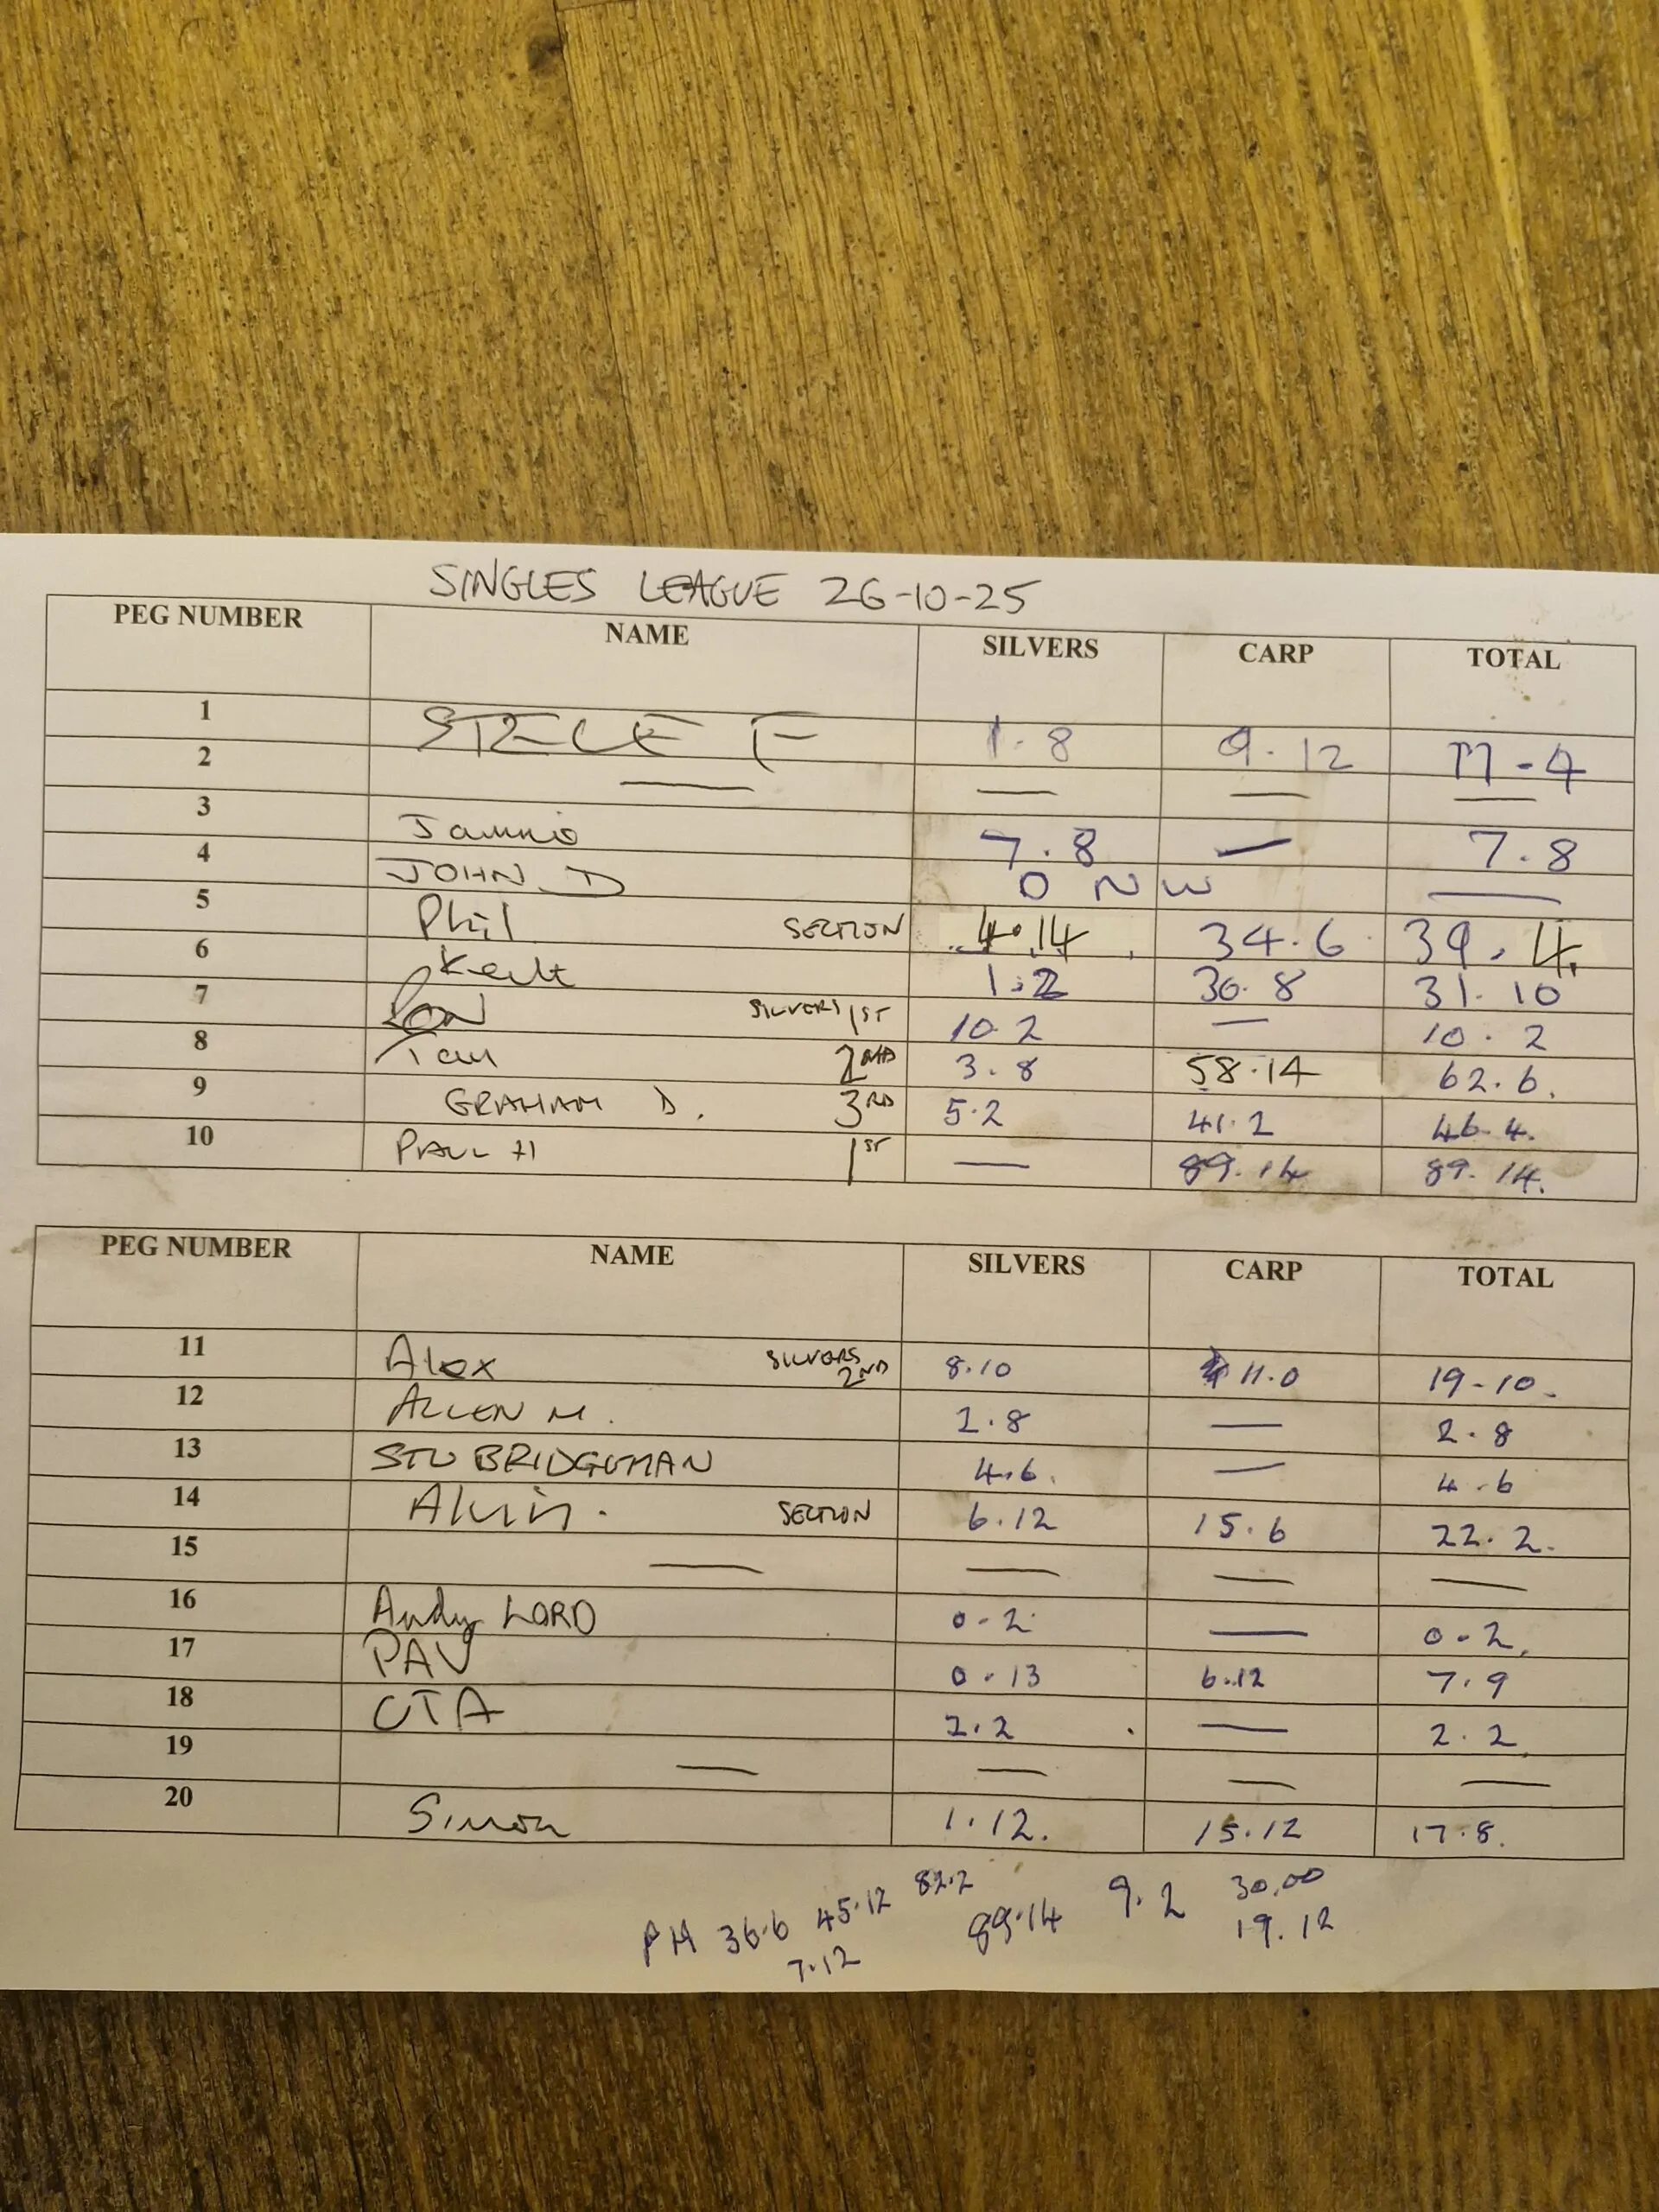 SINGLES LEAGUE 26-10-25
PEG NUMBER NAME SILVERS CARP TOTAL
1 STEVE F 1.8 9.12 11-4
2 — — — —
3 Jamie 7.8 — 7.8
4 JOHN D DNW —
5 Phil SECTION 4.14 34.6 39.4.
6 Keith 1.2 30.8 31.10
7 Ron SILVERS 1ST 10.2 — 10.2
8 2ND 3.8 58.14 62.6.
9 GRAHAM D. 3RD 5.2 41.2 46.4.
10 PAUL H 1ST — 89.14 89.14.
PEG NUMBER NAME SILVERS CARP TOTAL
11 Alex SILVERS 2ND 8.10 11.0 19-10-
12 ALLEN M. 2.8 — 2.8
13 STU BRIDGEMAN 4.6. — 4.6
14 Alvin. SECTION 6.12 15.6 22.2.
15 — — — —
16 Andy LORD 0-2 — 0-2.
17 PAV 0.13 6.12 7.9
18 2.2 — 2.2
19 — — — —
20 Simon 1.12. 15.12 17.8.
PH 36.6 45.12 82.2
7.12 89.14 9.2 30.00
19.12